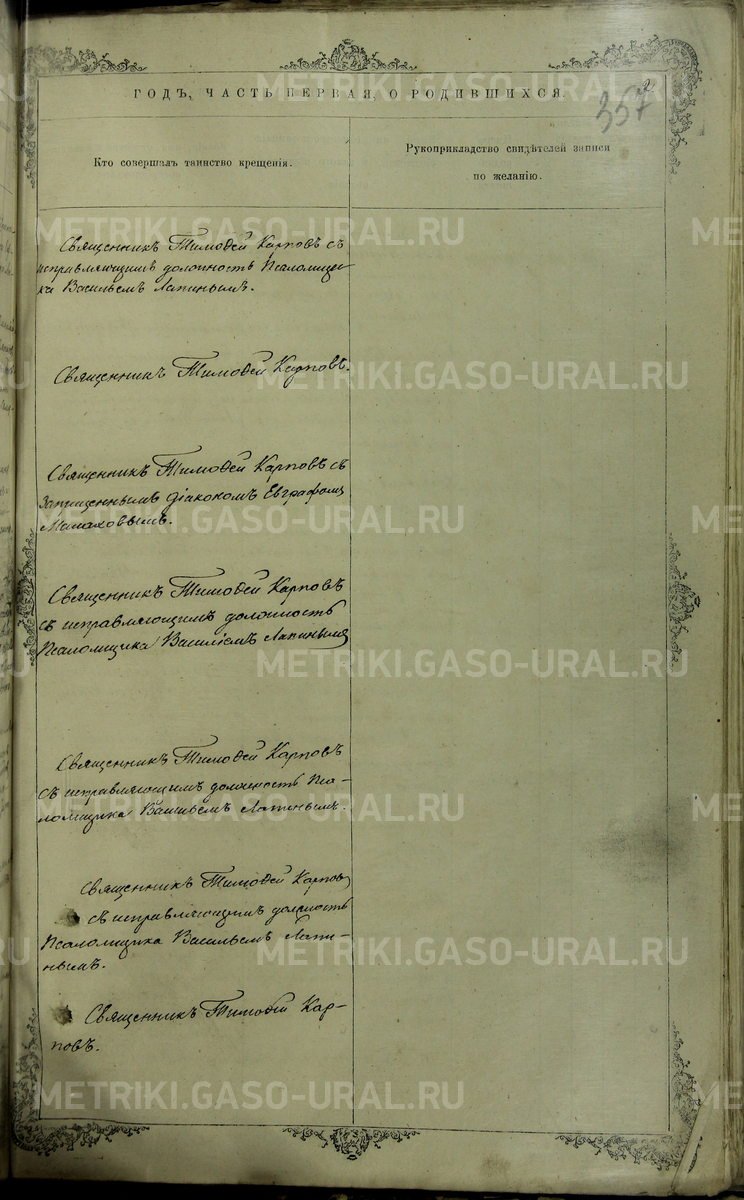 ГОДЪ, ЧАСТЬ ПЕРВАЯ, О РОДИВШИХСЯ.
357
2
Кто совершалъ таинство крещенія.
Рукоприкладство свидѣтелей записи
по желанію.
Священникъ Тимоѳей Карповъ съ
исправляющимъ должность Псаломщи
ка Васильемъ Лапинымъ.
Священникъ Тимоѳей Карповъ.
Священникъ Тимоѳей Карповъ съ
Запрещеннымъ діакономъ Евграфомъ
Малаховымъ.
Священникъ Тимоѳей Карповъ
съ исправляющимъ должность
Псаломщика Василіемъ Лапинымъ
Священникъ Тимоѳей Карповъ
съ исправляющимъ должность Пса-
ломщика Васильемъ Лапинымъ.
Священникъ Тимоѳей Карповъ
съ исправляющимъ должность
Псаломщика Васильемъ Лапи-
нымъ.
Священникъ Тимоѳей Кар-
повъ.
METRIKI.GASO-URAL.RU